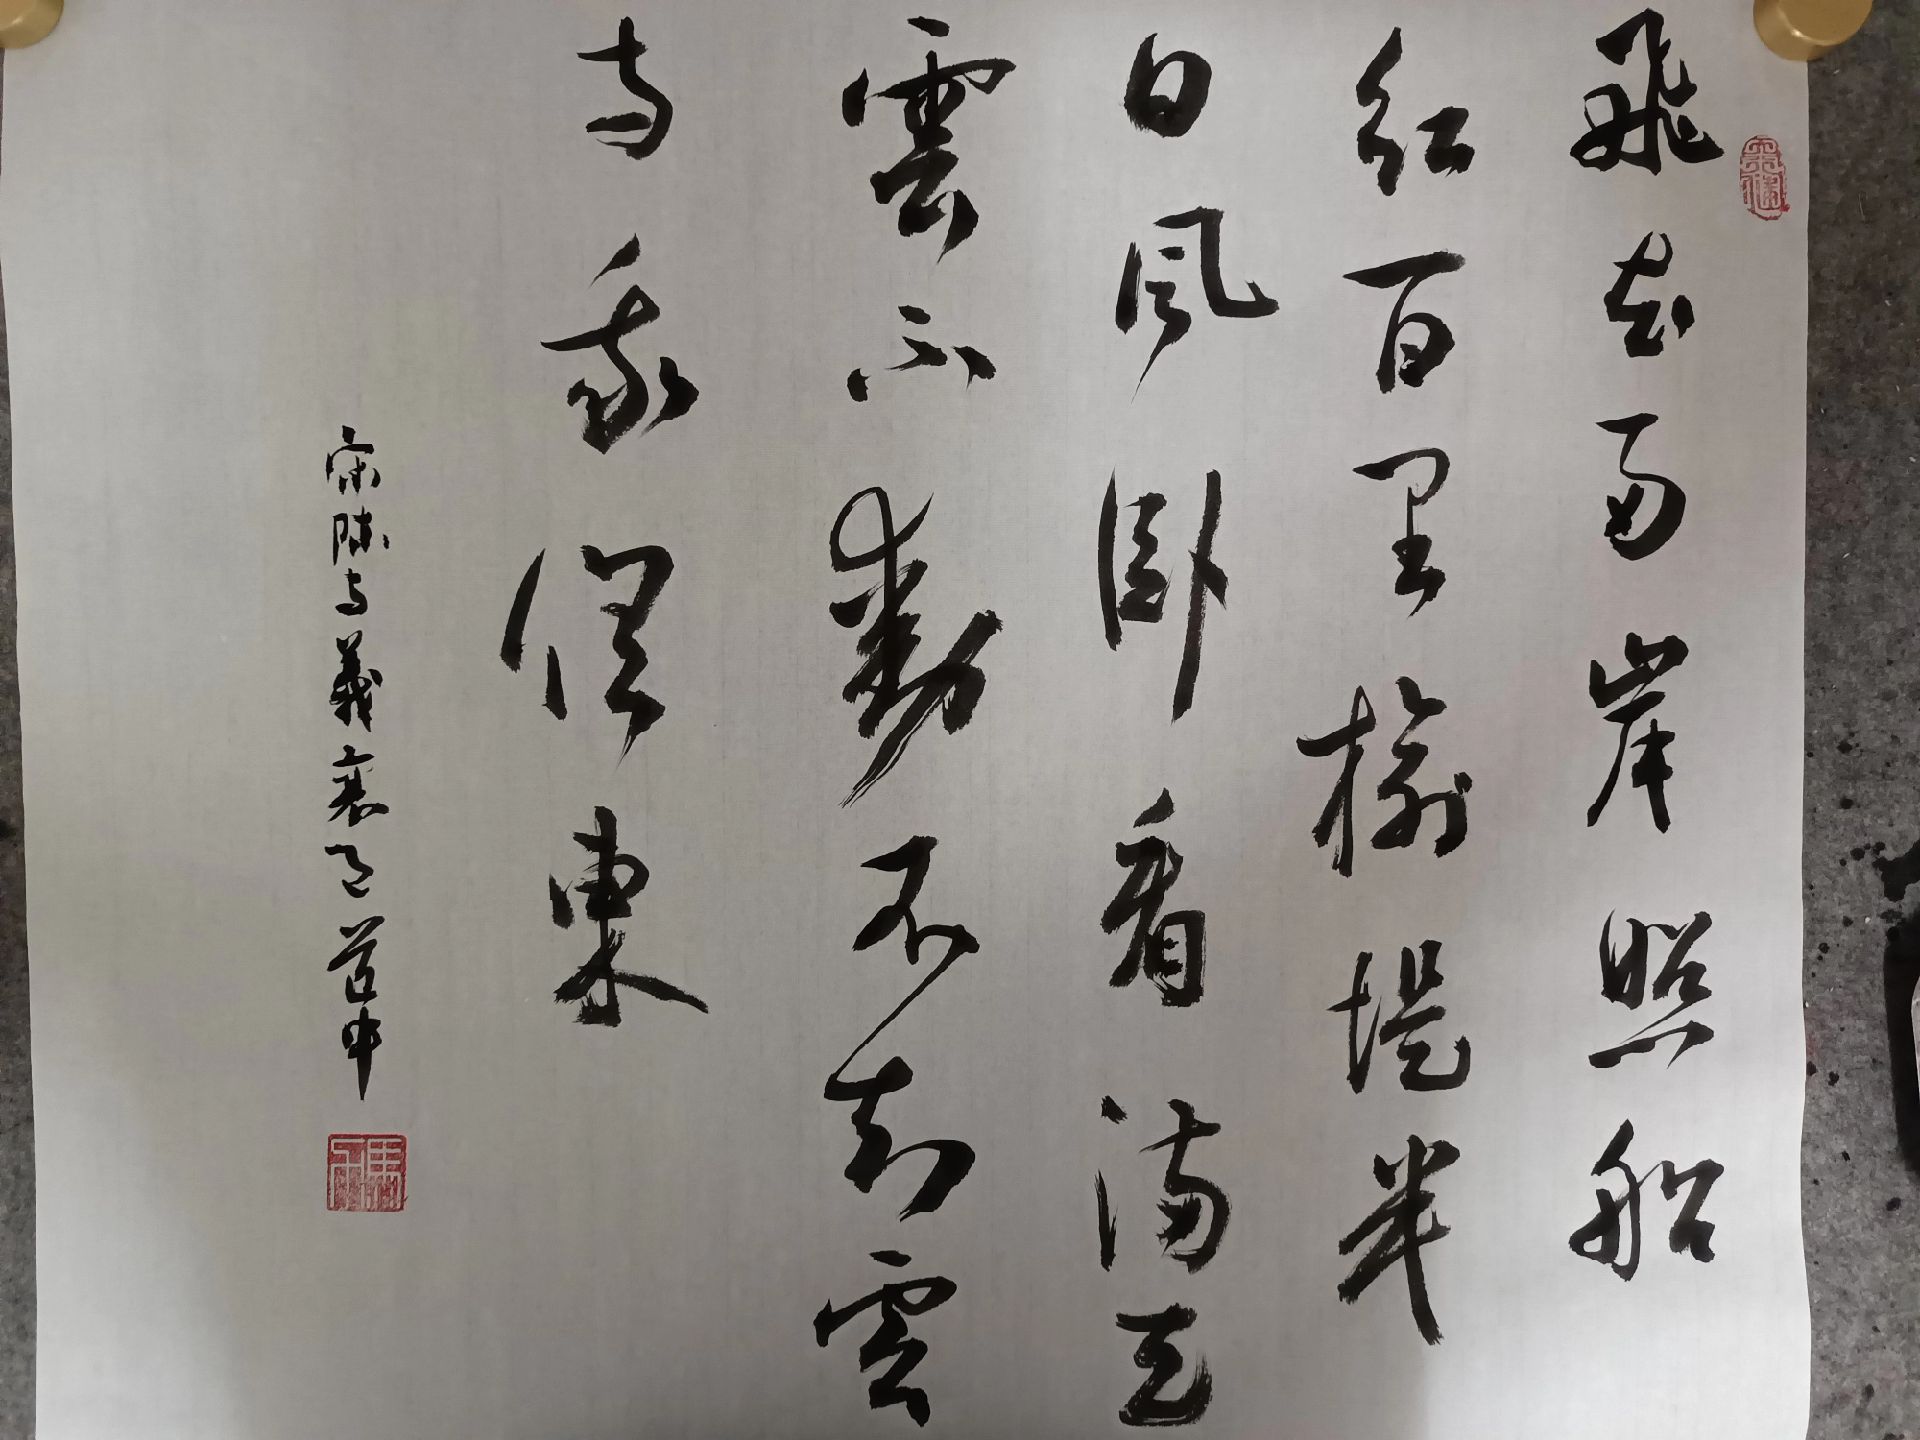 飛花两岸照船
紅百里榆堤半
日風卧看满天
雲不動不知雲
与我俱東
宋陈与義襄邑道中